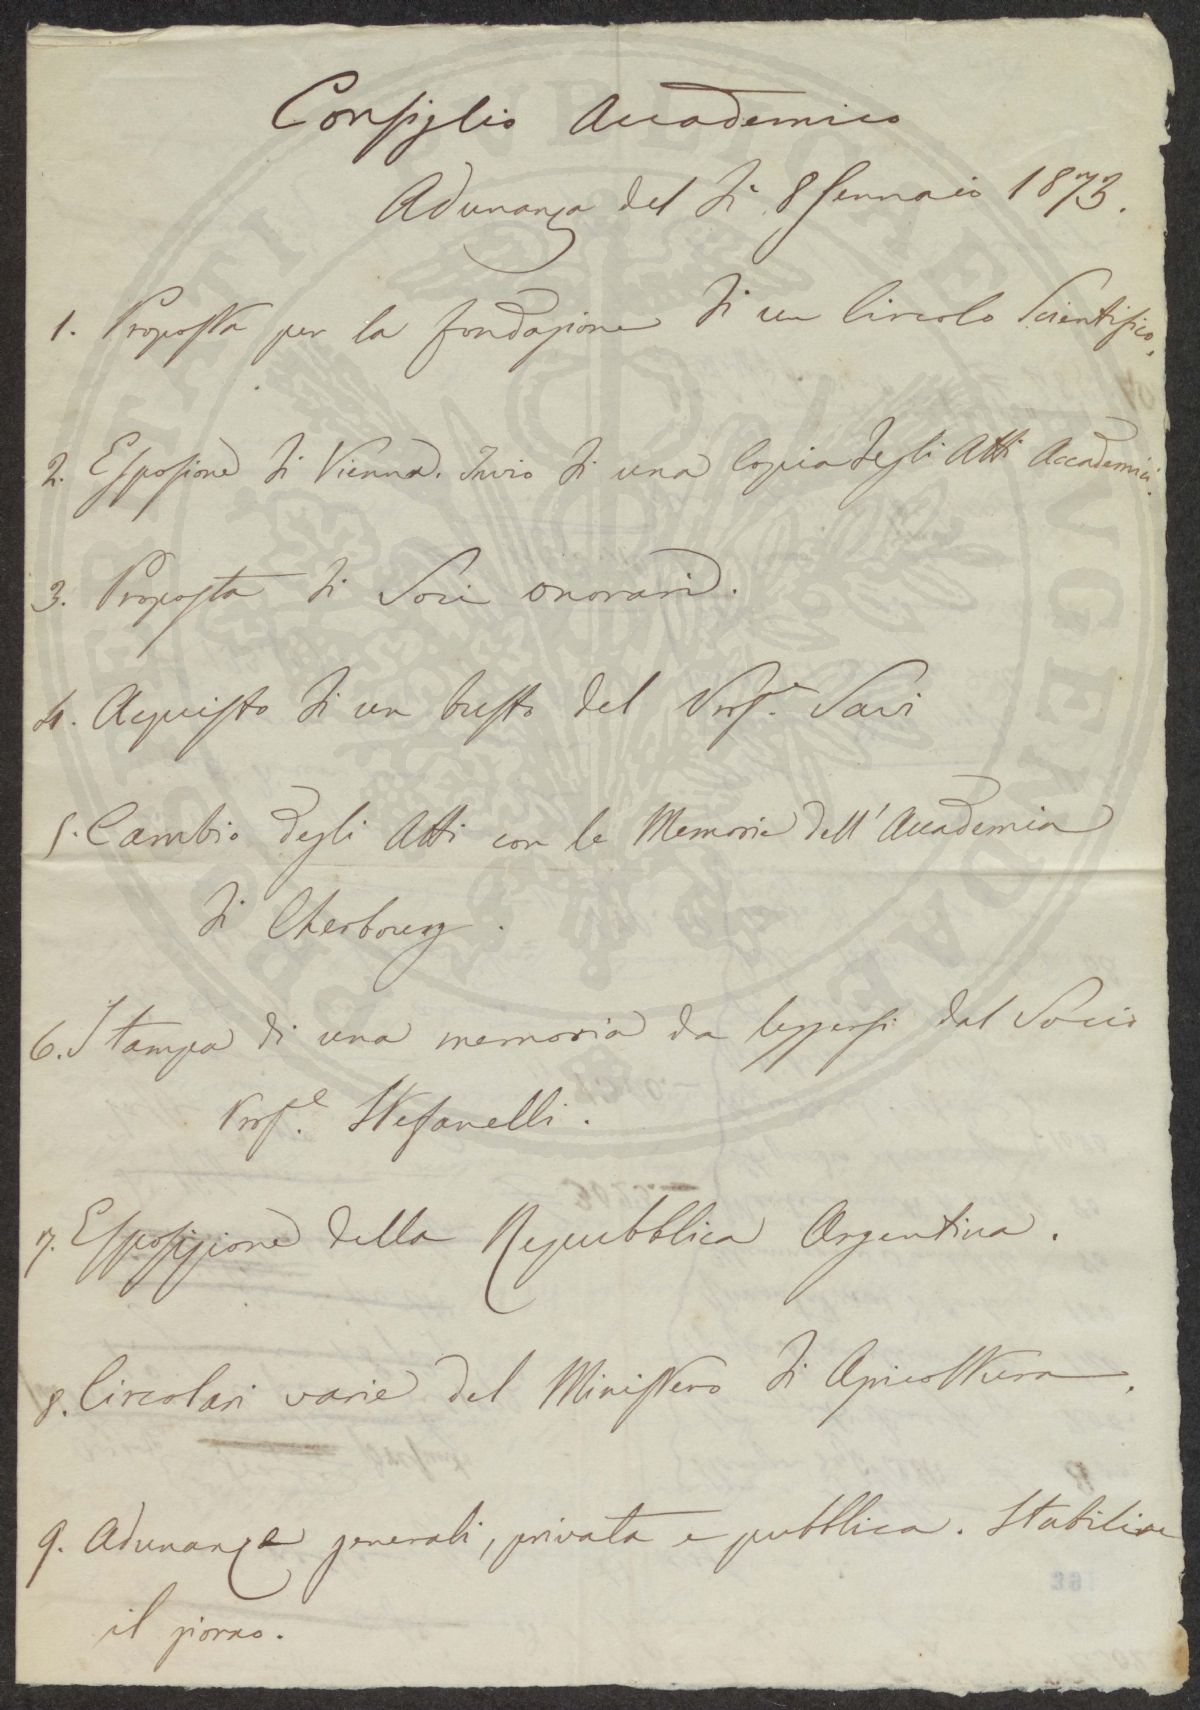 Consiglio Accademico
Adunanza del dì 8 Gennaio 1873.
1. Proposta per la fondazione di un Circolo Scientifico.
2. Esposione di Vienna. Invio di una Copia degli Atti Accademici.
3. Proposta di Soci onorari.
4. Acquisto di un busto del Prof.e Savi
5. Cambio degli Atti con le Memorie dell'Accademia
di Cherbourg.
6. Stampa di una memoria da leggersi dal Socio
Prof.e Stefanelli.
7. Esposizione della Repubblica Argentina.
8. Circolari varie del Ministero di Agricoltura.
9. Adunanze generali, privata e pubblica. Stabilire
il giorno.